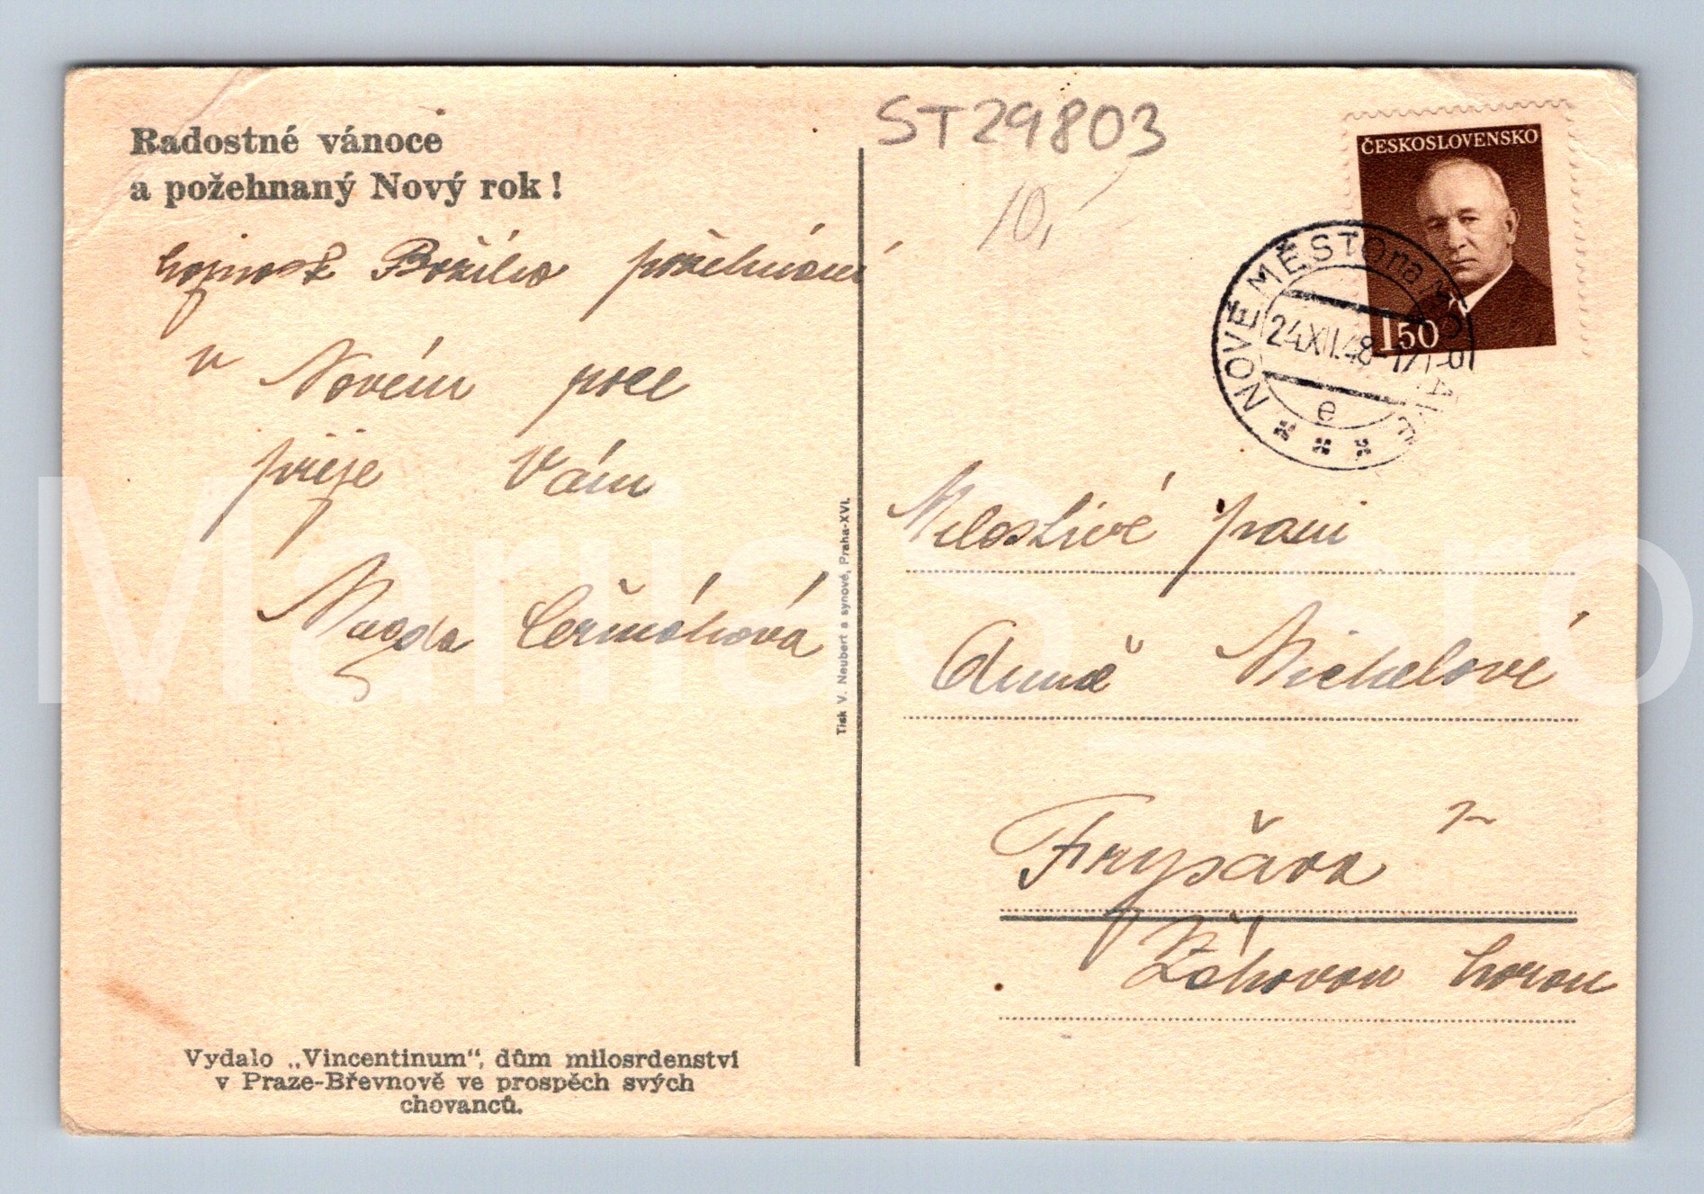 Radostné vánoce
a požehnaný Nový rok!
hojnost Božího požehnání
v Novém roce
přeje Vám
Magda Čermáková
Vydalo „Vincentinum“, dům milosrdenství
v Praze-Břevnově ve prospěch svých
chovanců.
Tisk V. Neubert a synové, Praha-XVI.
ST29803
10,-
ČESKOSLOVENSKO
1 50
NOVÉ MĚSTO na MORAVĚ
24.XII.48-17
e
Milostivé paní
Anně Michalové
Fryšava
Žákovou horou